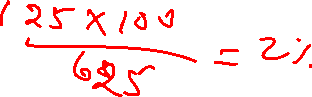 125×100
625 = 2%